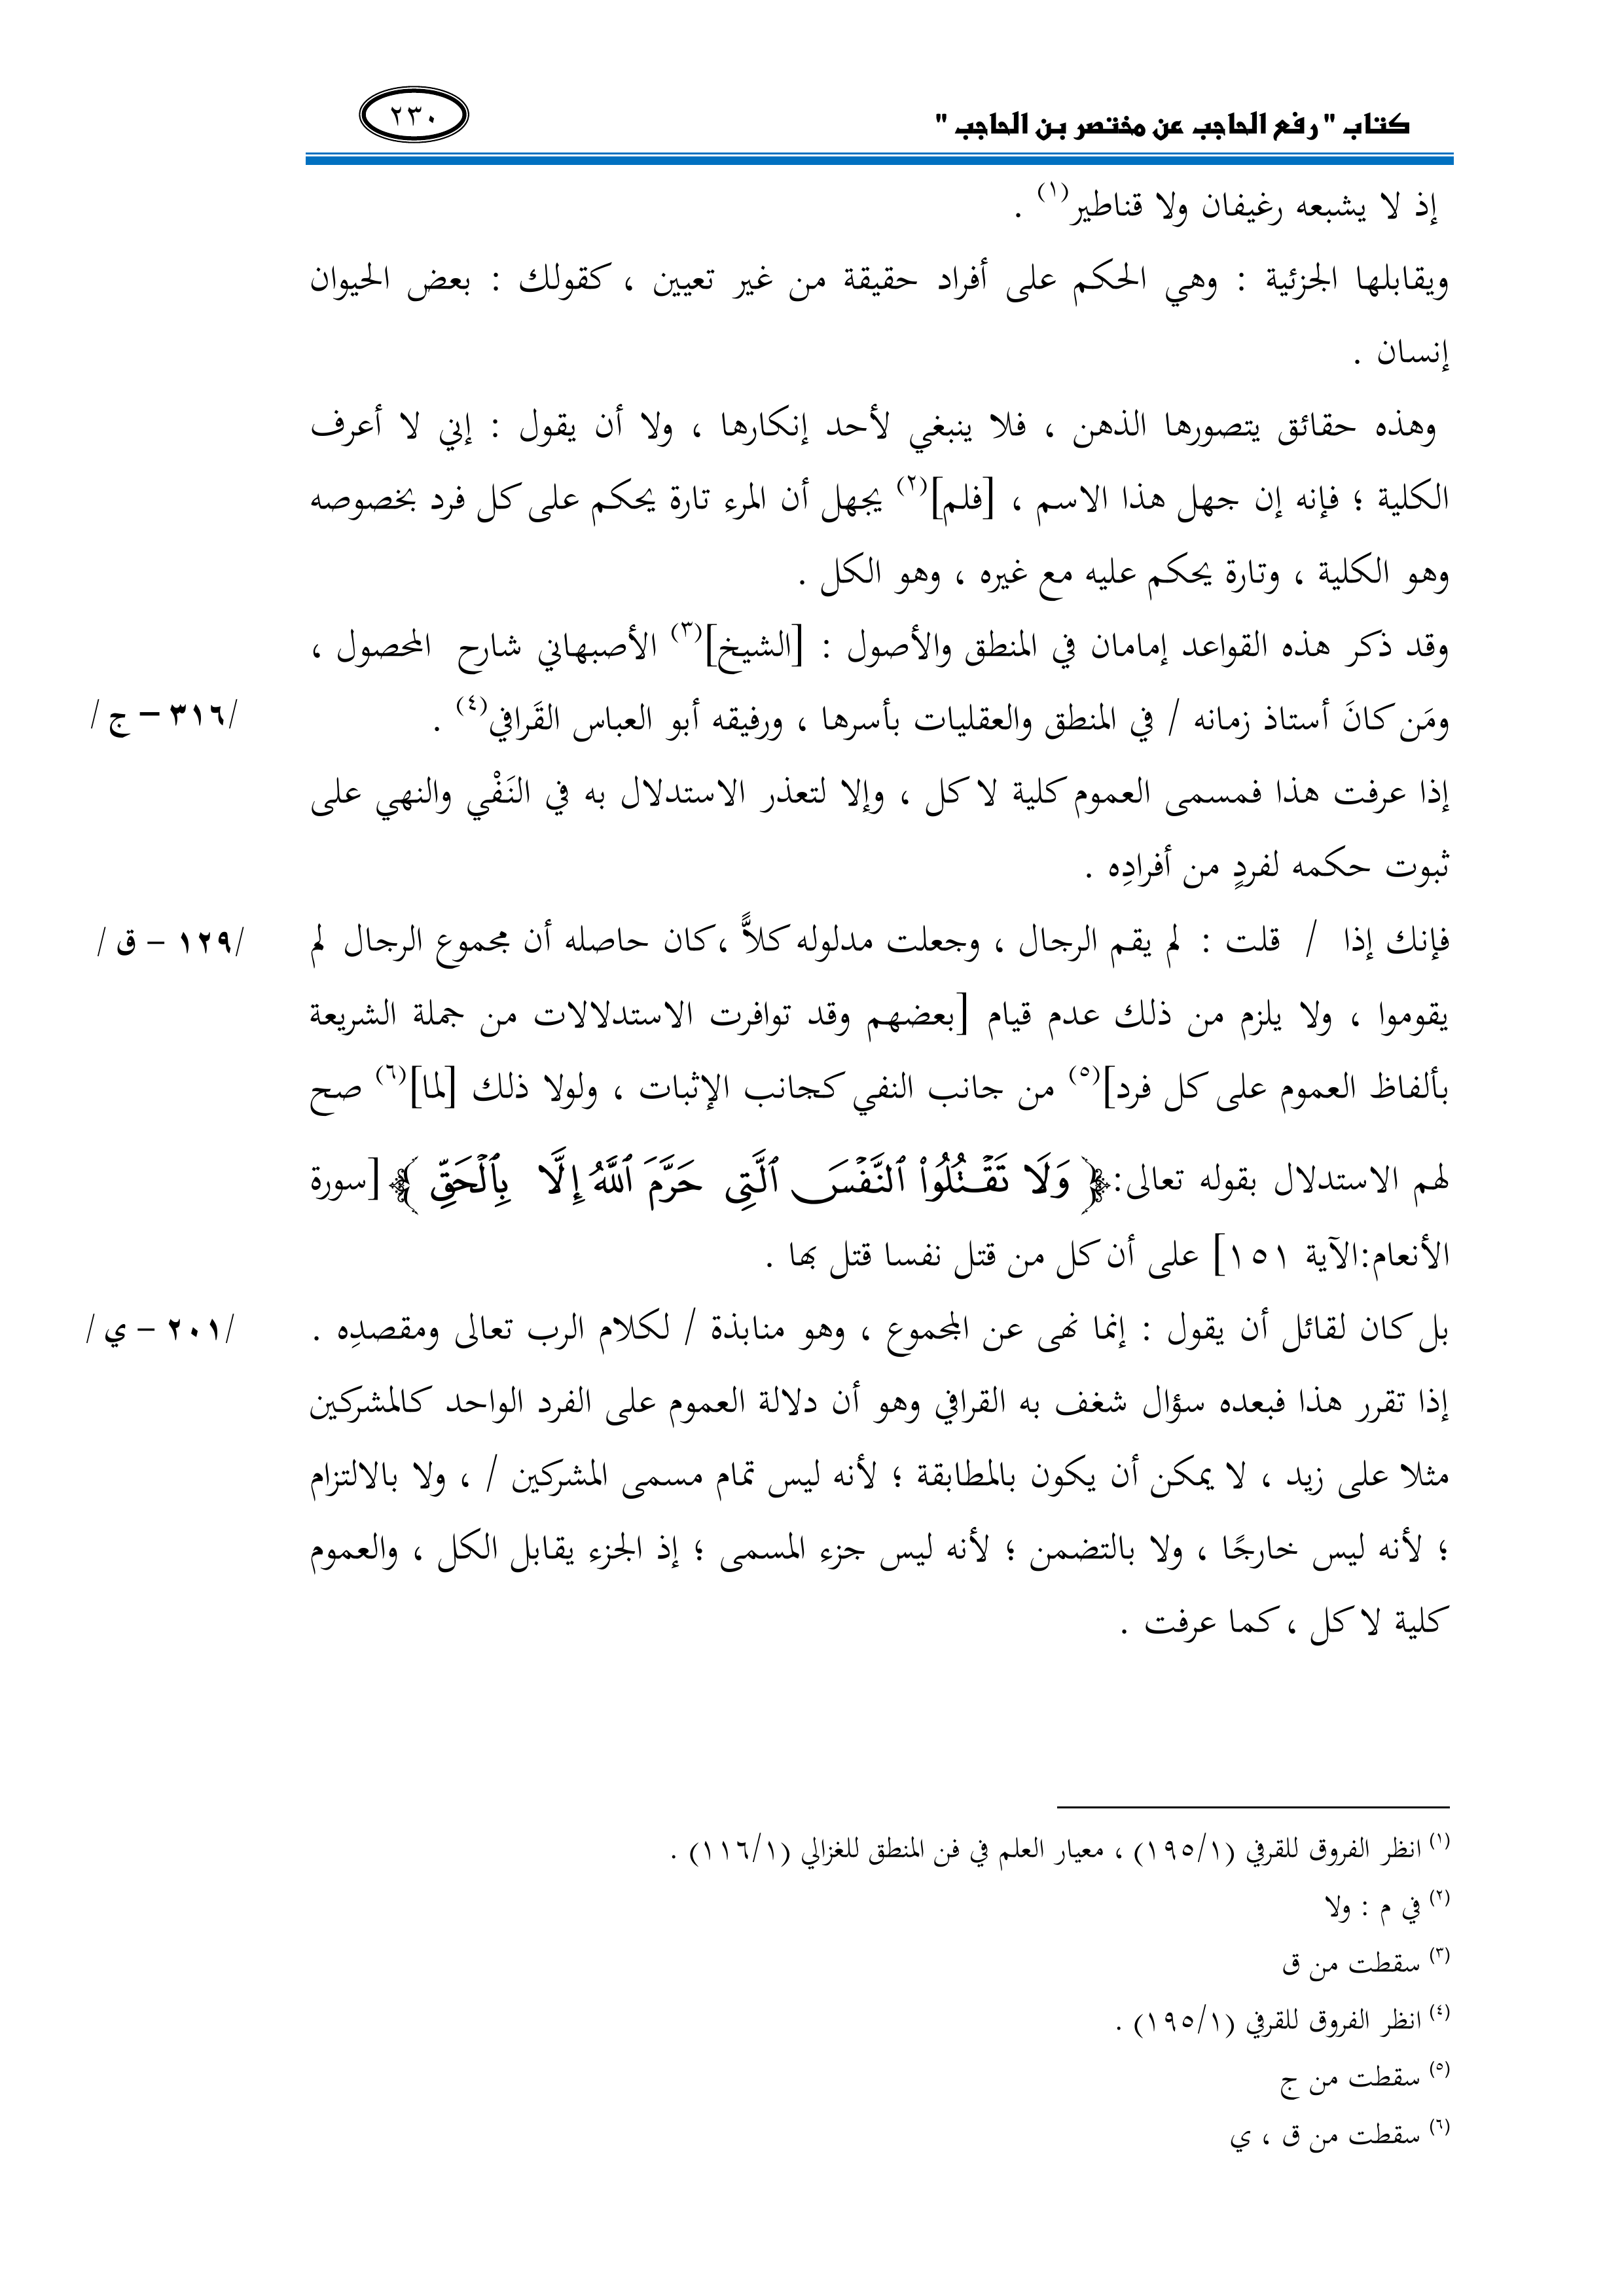 كتاب " رفع الحاجب عن مختصر بن الحاجب "
٢٣٠
إذ لا يشبعه رغيفان ولا قناطير(١) .
ويقابلها الجزئية : وهي الحكم على أفراد حقيقة من غير تعيين ، كقولك : بعض الحيوان
إنسان .
وهذه حقائق يتصورها الذهن ، فلا ينبغي لأحد إنكارها ، ولا أن يقول : إني لا أعرف
الكلية ؛ فإنه إن جهل هذا الاسم ، [فلم](٢) يجهل أن المرء تارة يحكم على كل فرد بخصوصه
وهو الكلية ، وتارة يحكم عليه مع غيره ، وهو الكل .
وقد ذكر هذه القواعد إمامان في المنطق والأصول : [الشيخ](٣) الأصبهاني شارح المحصول ،
ومَن كانَ أستاذ زمانه / في المنطق والعقليات بأسرها ، ورفيقه أبو العباس القَرافي(٤) .
/٣١٦ – ج /
إذا عرفت هذا فمسمى العموم كلية لا كل ، وإلا لتعذر الاستدلال به في النَفْي والنهي على
ثبوت حكمه لفردٍ من أفرادِه .
فإنك إذا / قلت : لم يقم الرجال ، وجعلت مدلوله كلاًّ ،كان حاصله أن مجموع الرجال لم
/١٢٩ – ق /
يقوموا ، ولا يلزم من ذلك عدم قيام [بعضهم وقد توافرت الاستدلالات من جملة الشريعة
بألفاظ العموم على كل فرد](٥) من جانب النفي كجانب الإثبات ، ولولا ذلك [لما](٦) صح
لهم الاستدلال بقوله تعالى:﴿ وَلَا تَقْتُلُواْ ٱلنَّفْسَ ٱلَّتِى حَرَّمَ ٱللَّهُ إِلَّا بِٱلْحَقِّ ﴾[سورة
الأنعام:الآية ١٥١] على أن كل من قتل نفسا قتل بها .
بل كان لقائل أن يقول : إنما نهى عن المجموع ، وهو منابذة / لكلام الرب تعالى ومقصدِه .
/٢٠١ – ي /
إذا تقرر هذا فبعده سؤال شغف به القرافي وهو أن دلالة العموم على الفرد الواحد كالمشركين
مثلا على زيد ، لا يمكن أن يكون بالمطابقة ؛ لأنه ليس تمام مسمى المشركين / ، ولا بالالتزام
؛ لأنه ليس خارجًا ، ولا بالتضمن ؛ لأنه ليس جزء المسمى ؛ إذ الجزء يقابل الكل ، والعموم
كلية لا كل ، كما عرفت .
(١) انظر الفروق للقرفي (١٩٥/١) ، معيار العلم في فن المنطق للغزالي (١١٦/١) .
(٢) في م : ولا
(٣) سقطت من ق
(٤) انظر الفروق للقرفي (١٩٥/١) .
(٥) سقطت من ج
(٦) سقطت من ق ، ي